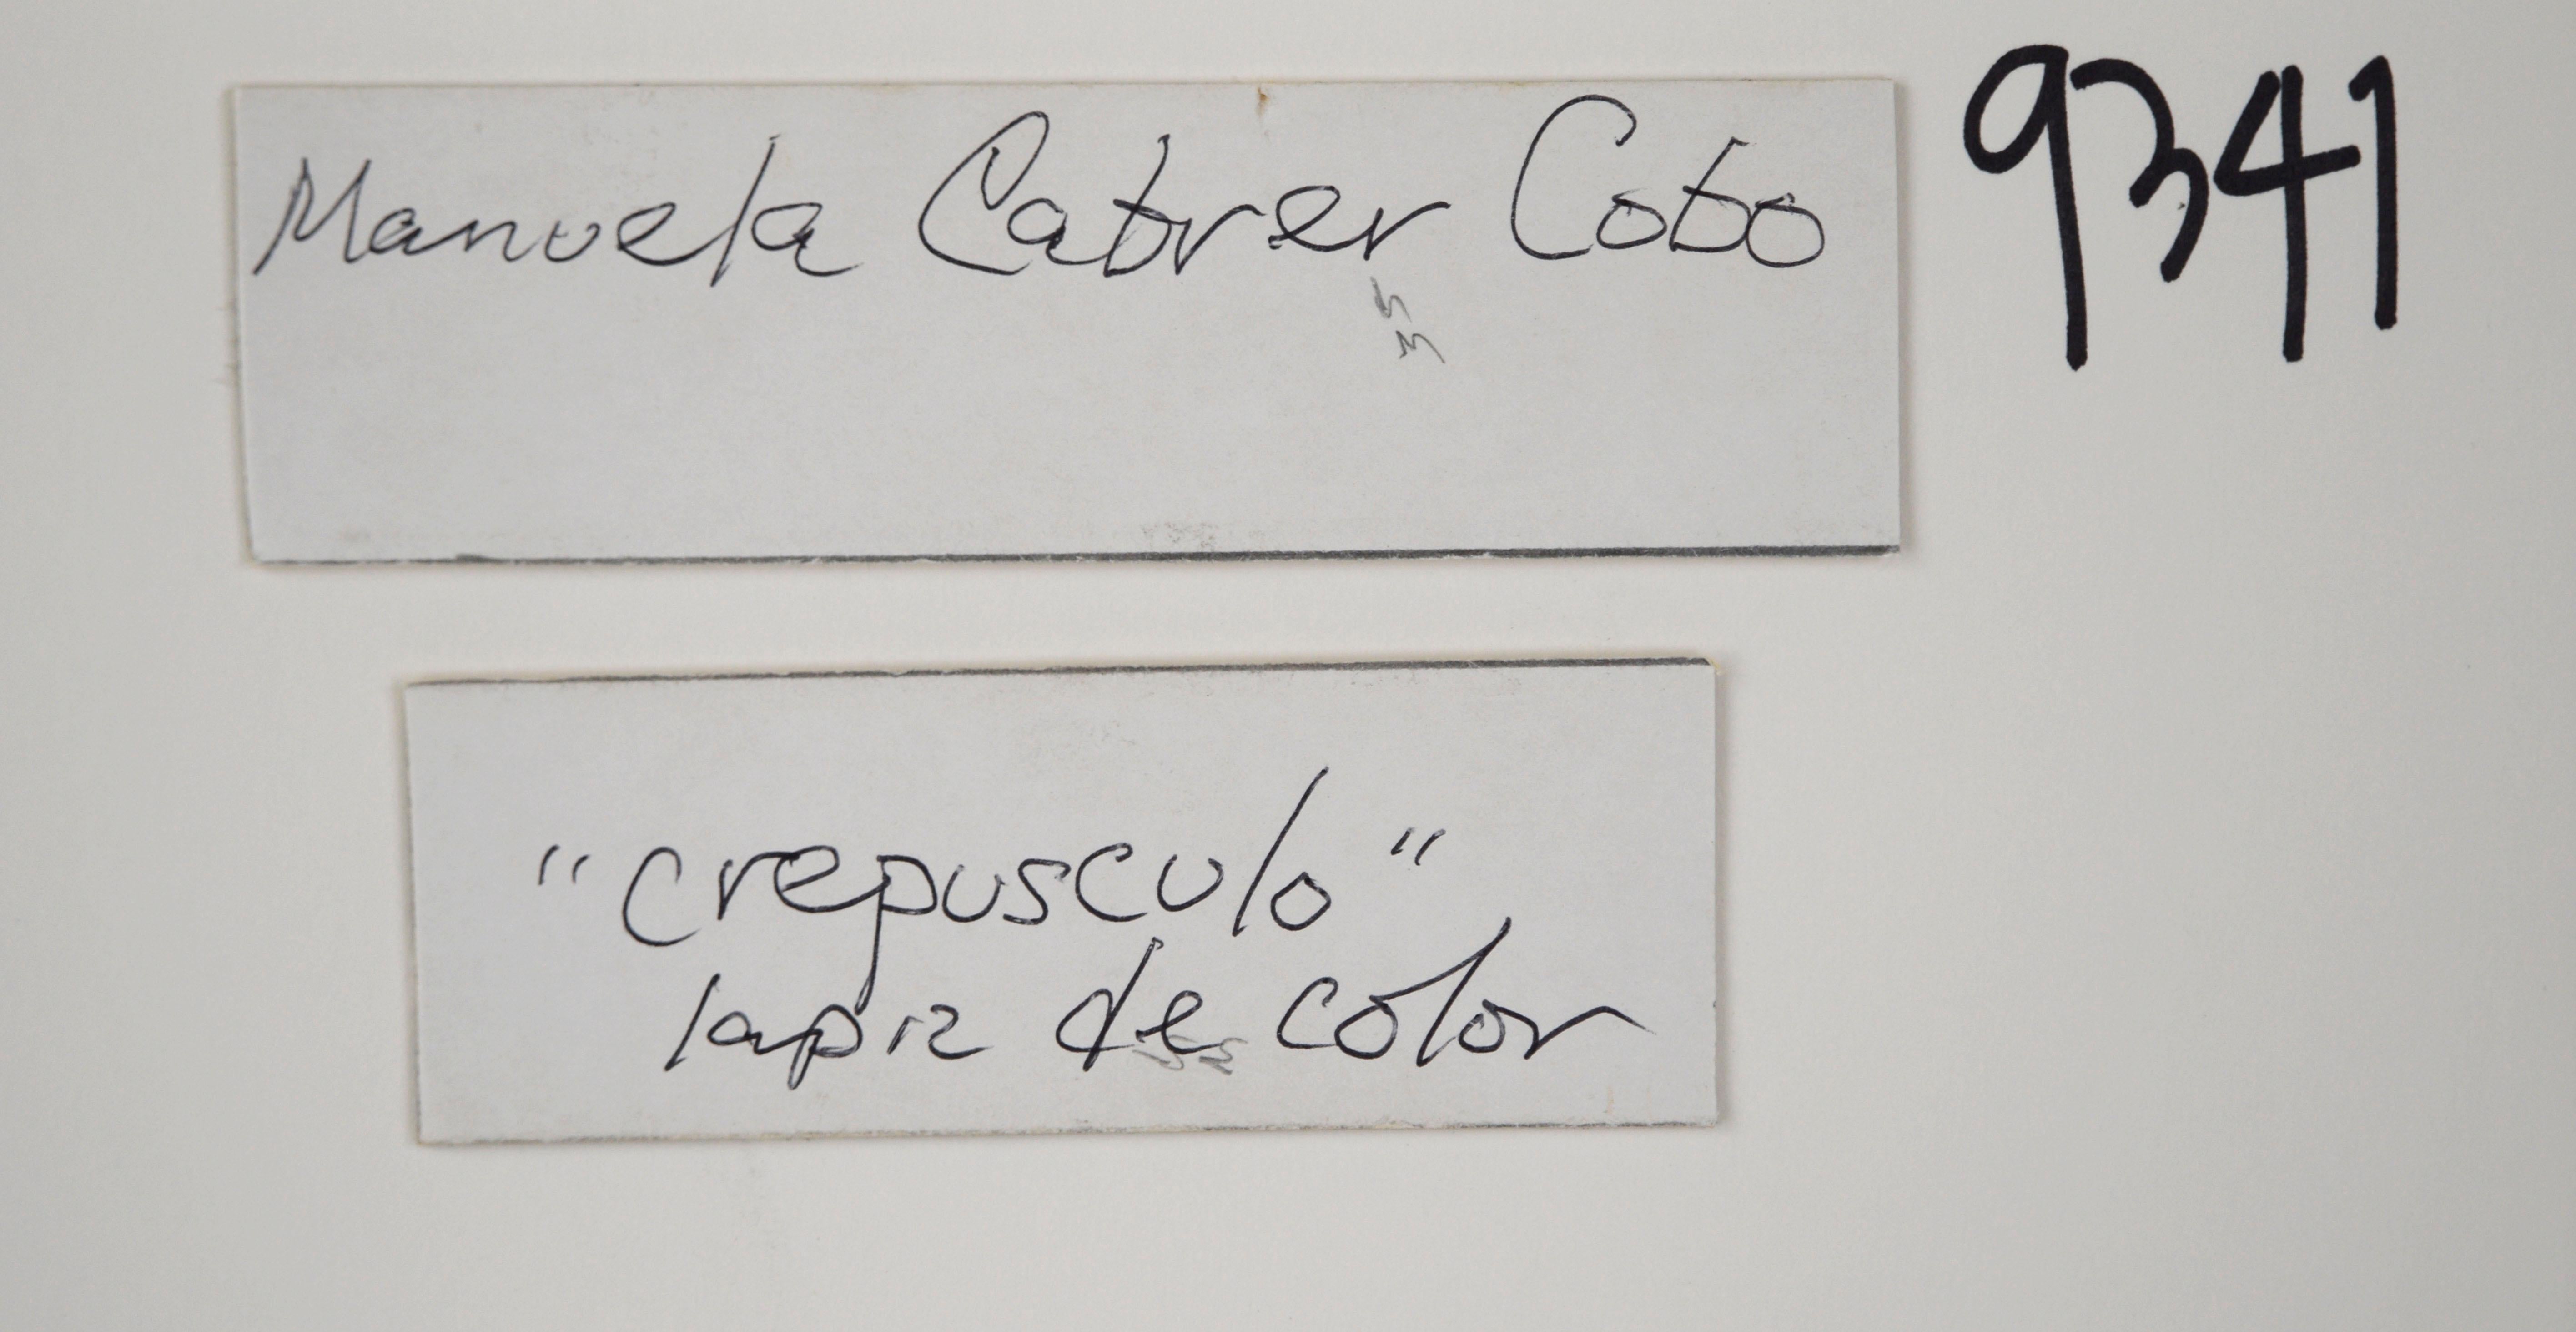 Manuela Cabrer Cobo
9341
35
"crepusculo"
lapiz de color